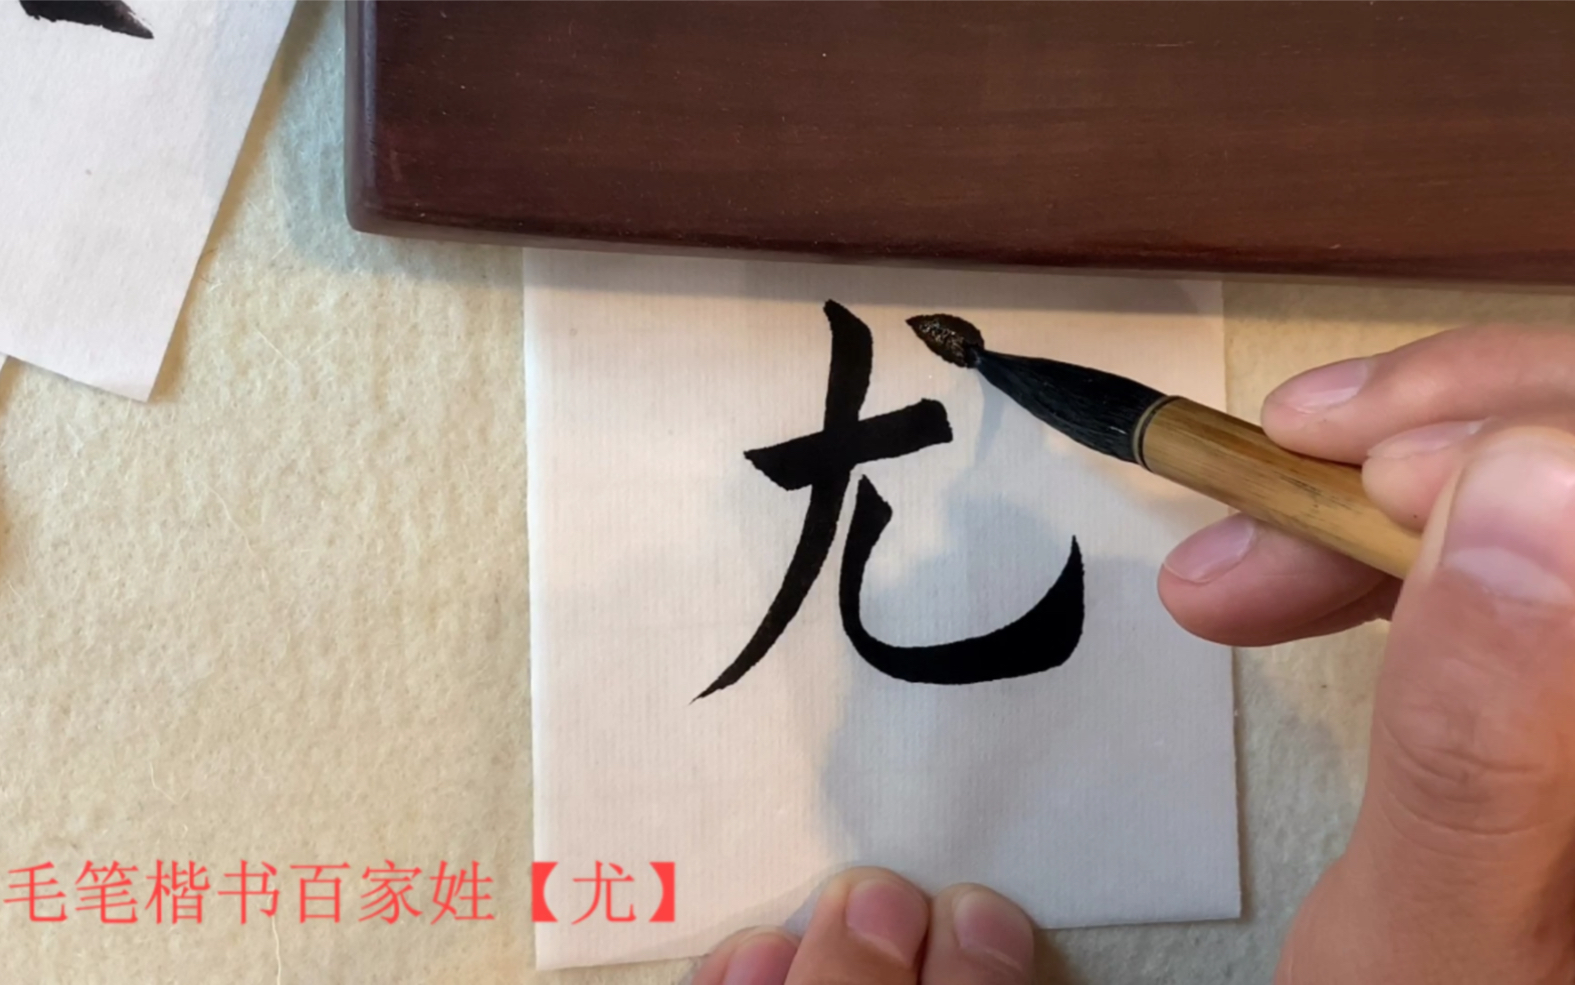 尤
毛笔楷书百家姓【尤】